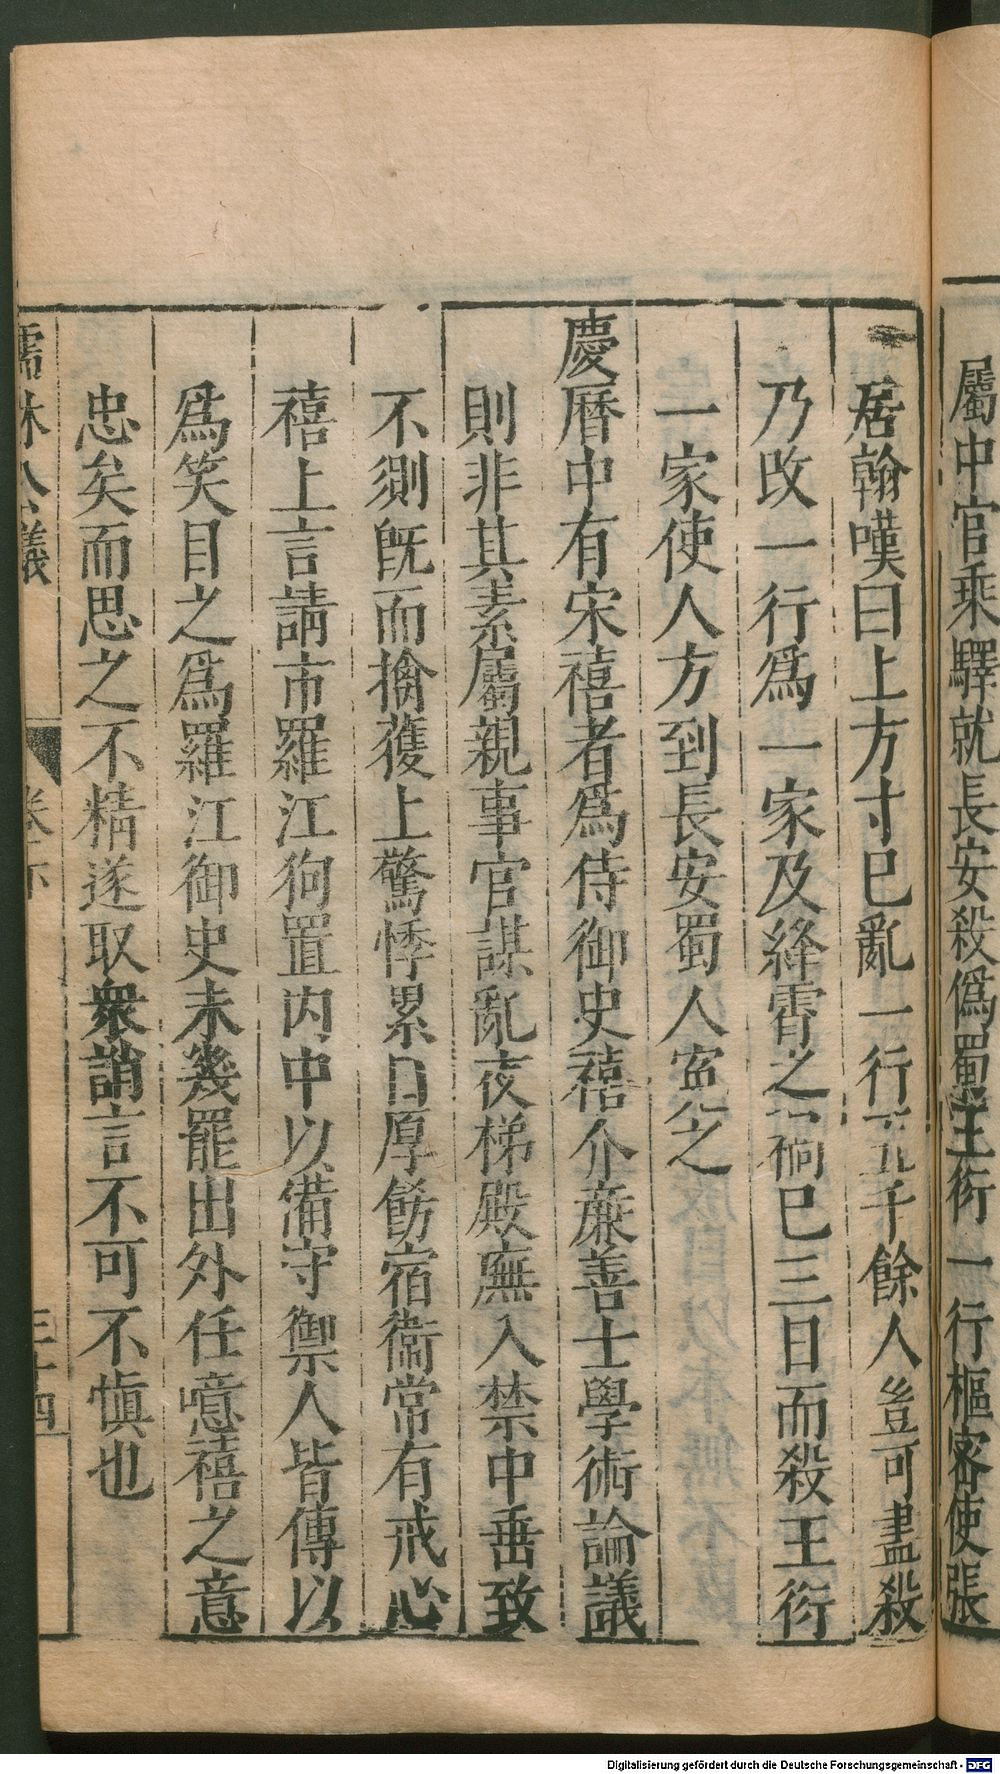 屬中官乘驛就長安殺僞蜀王衍一行樞密使張
居翰嘆曰上方寸已亂一行五千餘人豈可盡殺
乃改一行爲一家及絳霄之禍已三日而殺王衍
一家使人方到長安蜀人寃之
慶曆中有宋禧者爲侍御史禧介廉善士學術論議
則非其素屬親事官謀亂夜梯殿廡入禁中垂致
不測旣而擒獲上驚悸累日厚飭宿衞常有戒心
禧上言請市羅江狗置内中以備守禦人皆傳以
爲笑目之爲羅江御史未幾罷出外任噫禧之意
忠矣而思之不精遂取衆誚言不可不愼也
儒林公議 卷下 三十四
Digitalisierung gefördert durch die Deutsche Forschungsgemeinschaft - DFG